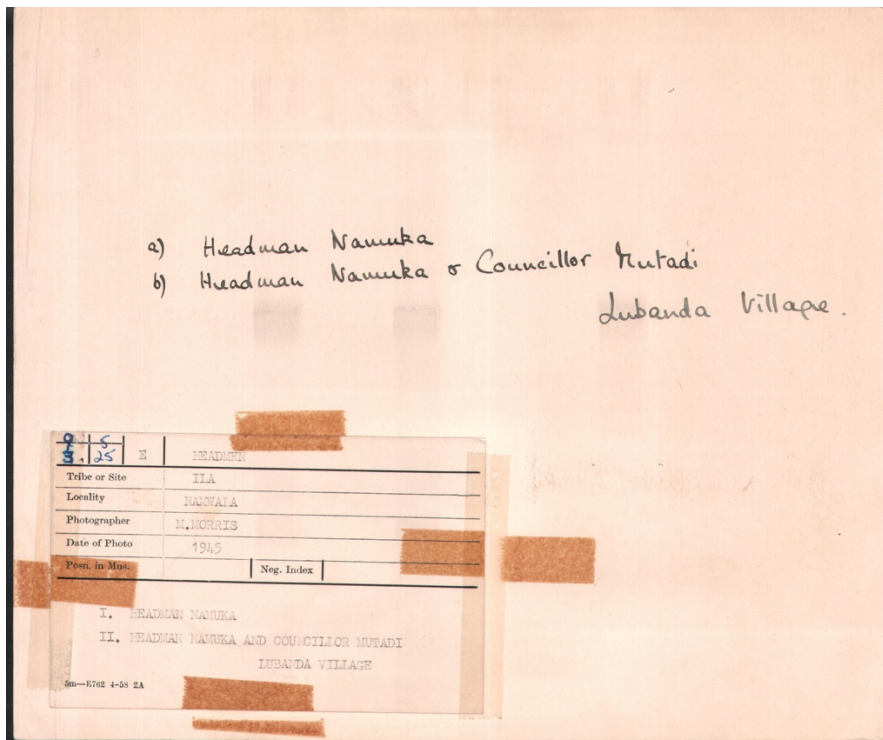 a) Headman Namuka
b) Headman Namuka & Councillor Mutadi
Lubanda Village.
9 5
3. 25 E HEADMEN
Tribe or Site ILA
Locality NAMWALA
Photographer M.MORRIS
Date of Photo 1945
Posn. in Mus. Neg. Index
I. HEADMAN NAMUKA
II. HEADMAN NAMUKA AND COUNCILLOR MUTADI
LUBANDA VILLAGE
5m—E762 4-58 2A